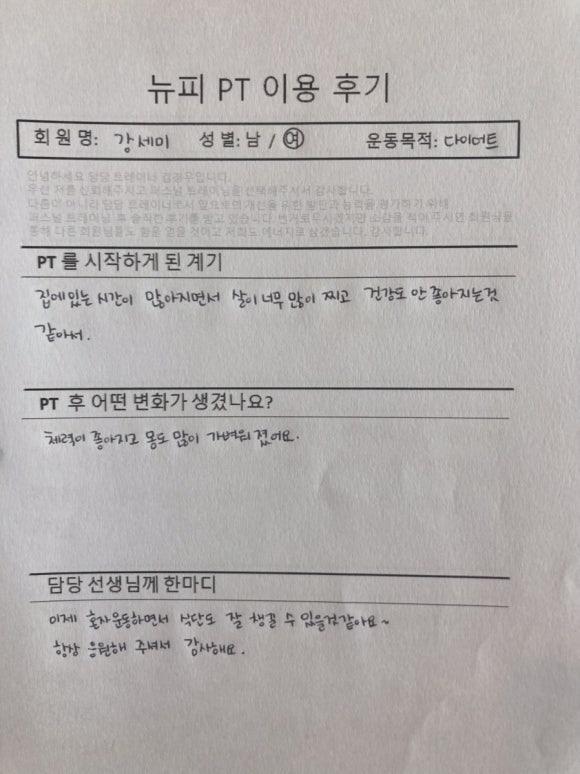 뉴피 PT 이용 후기
회원명: 강세미 성별: 남 / 여 운동목적: 다이어트
안녕하세요 담당 트레이너 김경우입니다.
우선 저를 신뢰해주시고 퍼스널 트레이닝을 선택해주셔서 감사합니다.
다름이 아니라 담당 트레이너로서 앞으로의 개선을 위한 발판과 능력을 평가하기 위해
퍼스널 트레이닝 후 솔직한 후기를 받고 있습니다. 번거로우시겠지만 소감을 적어주시면 회원님을
통해 다른 회원님들도 힘을 얻을 것이고 저희도 에너지로 삼겠습니다. 감사합니다.
PT 를 시작하게 된 계기
집에있는 시간이 많아지면서 살이 너무 많이 찌고 건강도 안 좋아지는것
같아서.
PT 후 어떤 변화가 생겼나요?
체력이 좋아지고 몸도 많이 가벼워 졌어요.
담당 선생님께 한마디
이제 혼자운동하면서 식단도 잘 챙길 수 있을것같아요~
항상 응원해 주셔서 감사해요.